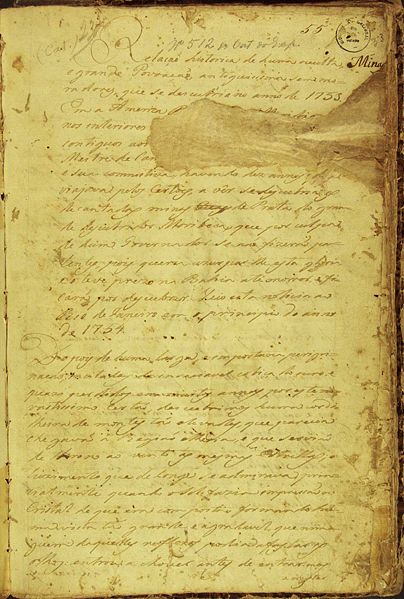 55
Nº 512
Minas
Relação historica de huma occulta,
e grande Povoação, antiquissima sem mo-
radores, que se descubrio no anno de 1753
Em a America
nos interiores
contiguos aos
Mestre de Can
e sua comitiva, havendo dez annos, que
viajava pelos certões, a vêr se descobria as
decantadas minas de Prata do gran
de descobridor Moribeca, que por culpa
de hum Governador se não fizerão pa
tentes, pois queria uzurparlhe esta gloria
e o teve prezo na Bahia até morrer, e fi
carão por descobrir. Veio esta noticia ao
Rio de Janeiro em o principio do anno
de 1754.
Depois de huma longa, e importuna peregri
nação, incitados da insaciavel cobiça de ouro, e
quazi perdidos em muitos annos por este vas
tissimo Certão, descobrimos huma cordi
lheira de montes tão elevados, que parecia
chegavão á Região etherea, e que servião
de throno ao vento, as mesmas Estrellas; o
luzimento que de longe se admirava, prin
cipalmente quando o sol fazia impressão ao
Cristal de que era composta e formando hu
ma vista tão grande e agradavel, que nin
guem daquelles reflexos podia afastar os
olhos: entrou a chover antes de entrarmos
a registar